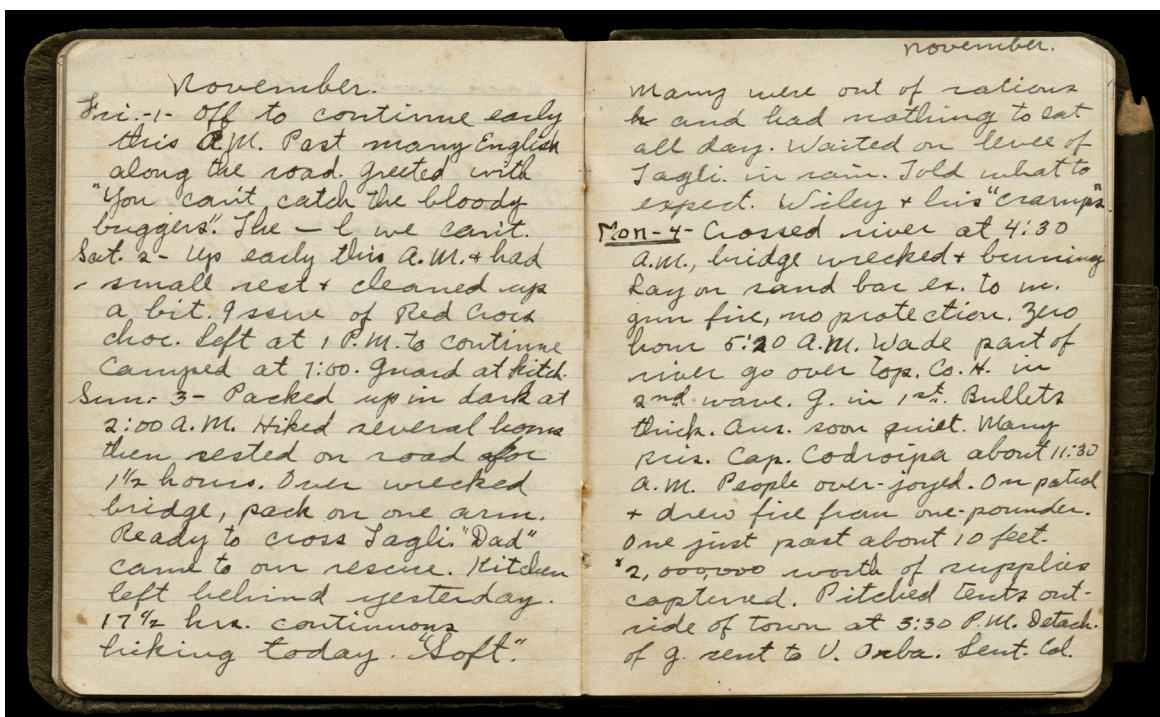 November.
Fri.-1- Off to continue early
this A.M. Past many English
along the road. Greeted with
"You can't catch the bloody
buggers". The — l we can't.
Sat. 2- Up early this A.M. + had
small rest + cleaned up
a bit. Issue of Red Cross
choc. Left at 1 P.M. to continue
Camped at 7:00. Guard at kitch.
Sun. 3- Packed up in dark at
2:00 A.M. Hiked several hours
then rested on road for
1½ hours. Over wrecked
bridge, pack on one arm.
Ready to cross Tagli. "Dad"
came to our rescue. Kitchen
left behind yesterday.
17½ hrs. continuous
hiking today. "Soft".
november.
Many were out of rations
and had nothing to eat
all day. Waited on levee of
Tagli. in rain. Told what to
expect. Wiley + his "cramps".
Mon-4- Crossed river at 4:30
A.M., bridge wrecked + burning
Lay on sand bar ex. to m.
gun fire, no protection. Zero
hour 5:20 A.M. Wade part of
river go over Top. Co. H. in
2nd wave. G. in 1st. Bullets
thick. Aus. soon quiet. Many
pris. Cap. Codroipa about 11:30
A.M. People over-joyed. On patrol
+ drew fire from one-pounder.
One just past about 10 feet.
$2,000,000 worth of supplies
captured. Pitched tents out-
side of town at 3:30 P.M. Detach.
of G. sent to V. Orba. Sent. Col.